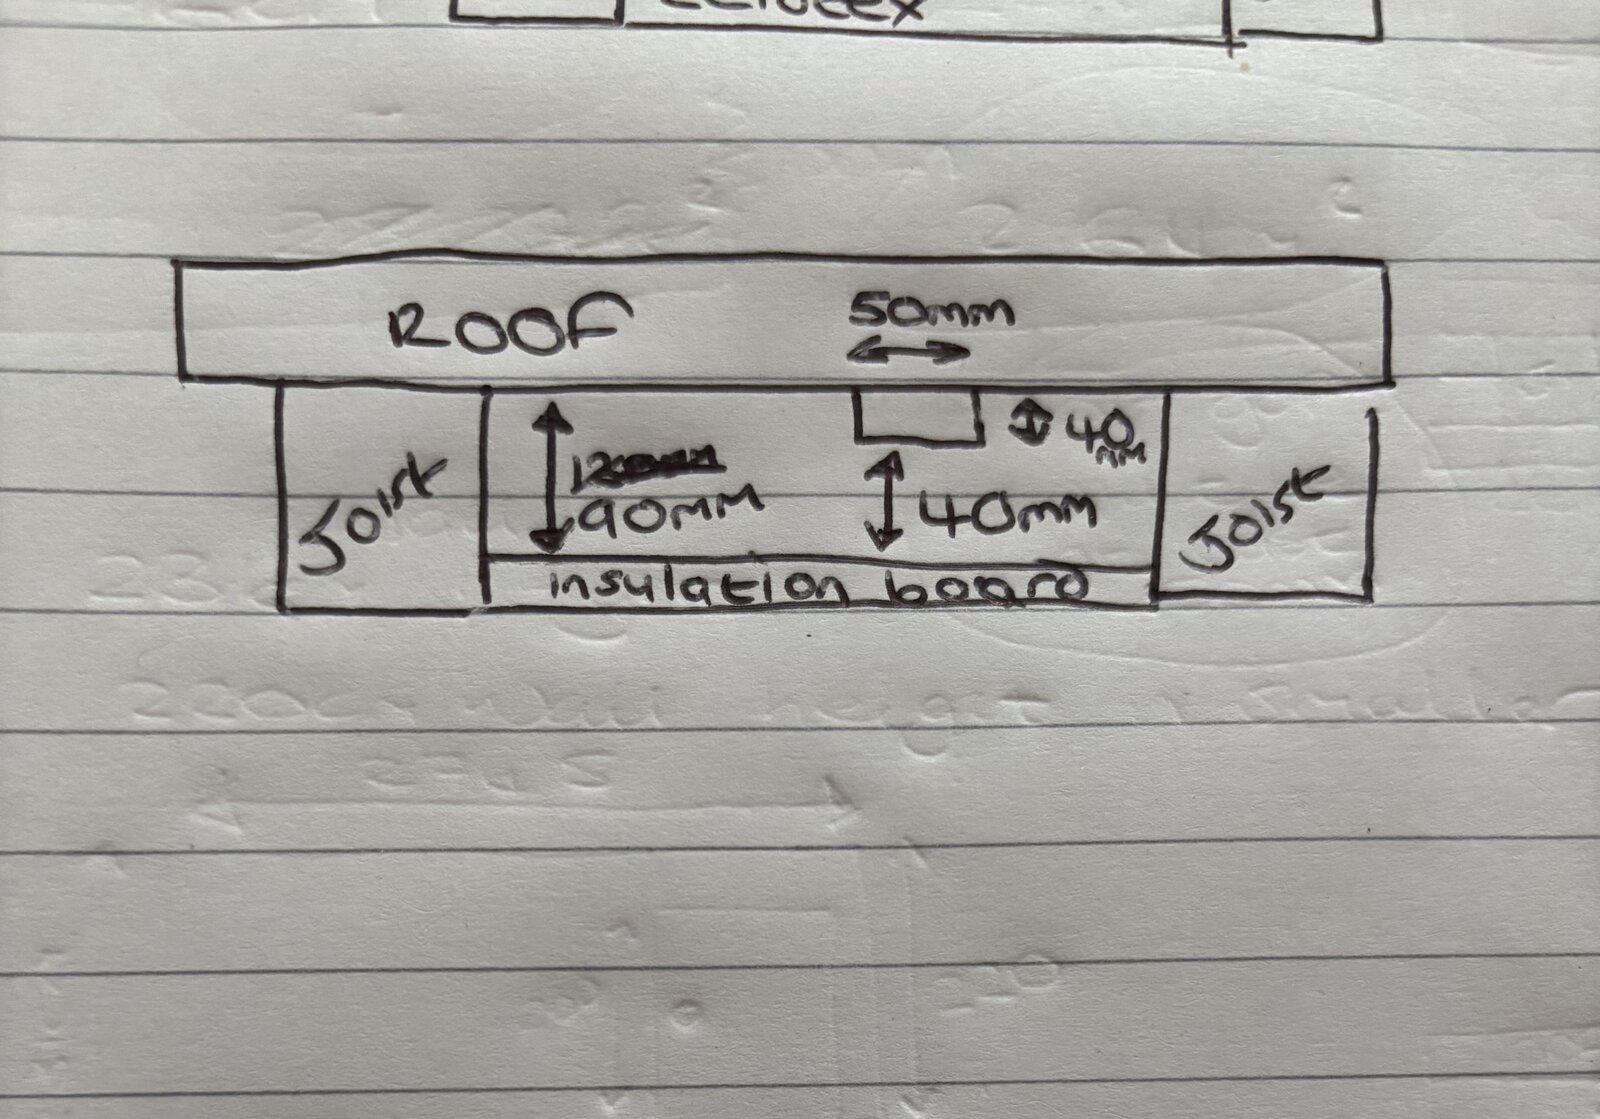 ROOF
50mm
40
mm
90mm
40mm
Joist
Joist
insulation board